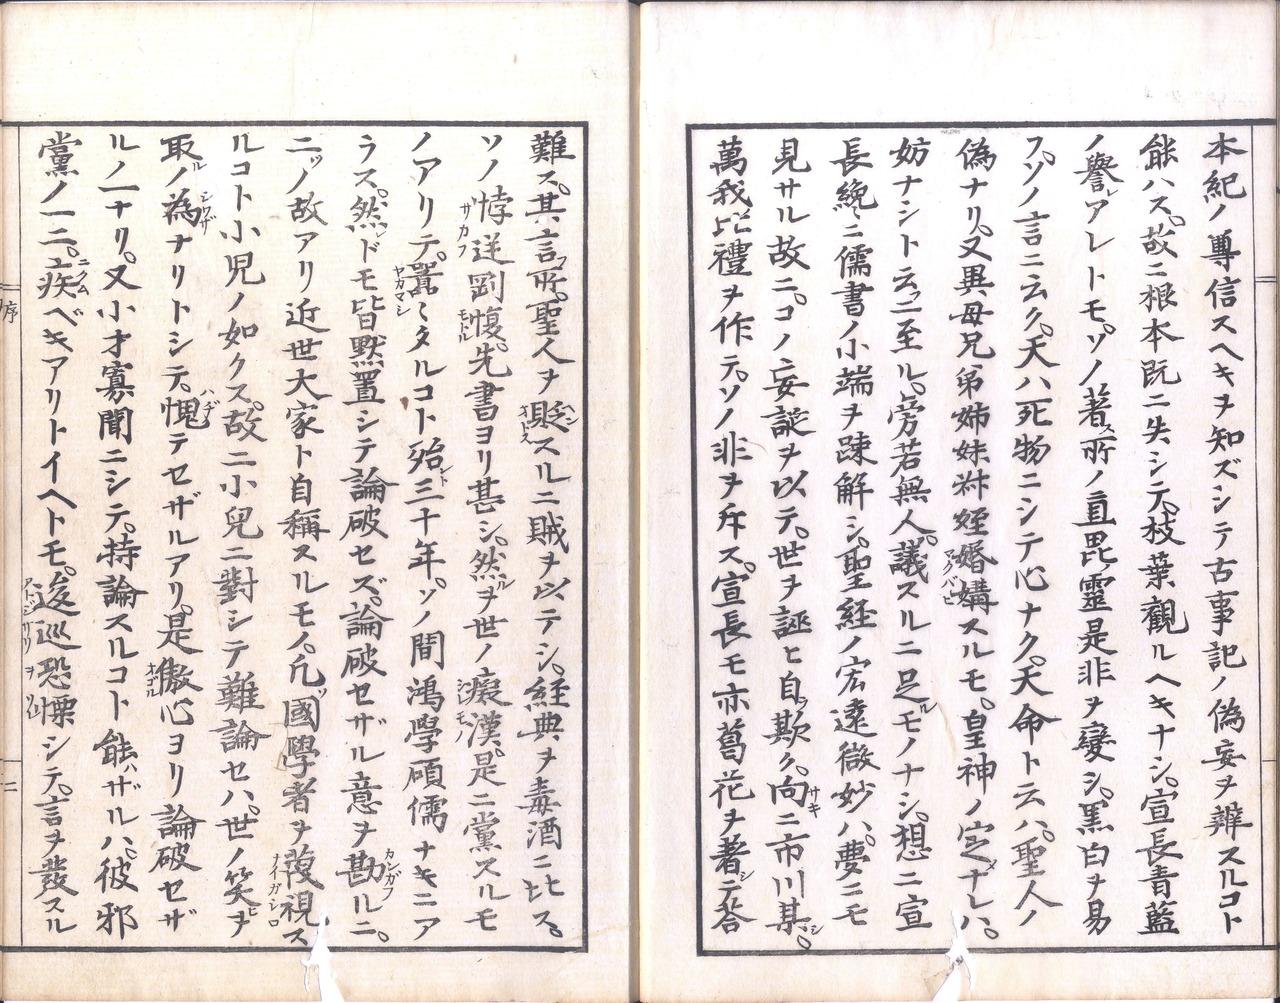 本紀ノ尊信スヘキヲ知ズシテ古事記ノ偽妄ヲ辨スルコト
能ハス。故ニ根本既ニ失シテ。枝葉觀ルヘキナシ。宣長青藍
ノ譽レアレトモ。ソノ著ス所ノ直毘靈是非ヲ變シ。黒白ヲ易
フ。ソノ言ニ云ク。天ハ死物ニシテ心ナク。天命ト云ハ。聖人ノ
偽ナリ。又異母兄弟姉妹并姪婚媾スルモ。皇神ノ定メナレハ。
妨ナシト云ニ至ル。旁若無人。議スルニ足ルモノナシ。想ニ宣
長纔ニ儒書ノ小端ヲ踈解シ。聖経ノ宏遠微妙ハ。夢ニモ
見サル故ニ。コノ妄誕ヲ以テ。世ヲ誣ヒ自ラ欺ク。向ニ市川某。
萬我比禮ヲ作テ。ソノ非ヲ斥ス。宣長モ亦葛花ヲ著シテ答
難ス。其言フ所。聖人ヲ貶スルニ賊ヲ以テシ。経典ヲ毒酒ニ比ス。
ソノ悖逆剛愎。先書ヨリ甚シ。然ルヲ世ノ癡漢。是ニ黨スルモ
ノアリテ。囂〻タルコト殆ント三十年。ソノ間鴻學碩儒ナキニア
ラス。然レドモ皆黙置シテ論破セズ。論破セザル意ヲ勘ルニ。
二ツノ故アリ近世大家ト自稱スルモノ。凡ソ國學者ヲ蔑視ス
ルコト小児ノ如クス。故ニ小兒ニ對シテ難論セハ。世ノ笑ヒヲ
取ルノ為ナリトシテ。愧テセザルアリ。是傲心ヨリ論破セザ
ルノ一ナリ。又小才寡聞ニシテ。持論スルコト能ハザルハ。彼邪
黨ノ一二。疾ムベキアリトイヘトモ。逡巡恐慄シテ。言ヲ發スル
序
二